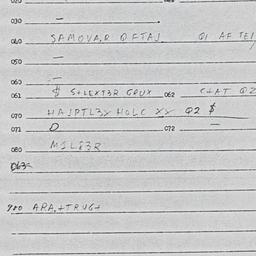 020
030 —
040 SAMOVAR OFTAJ Q1 AFTEI
050 —
060 —
061 $ S+LEXT3R GRUX 062 C+AT QZ
070 HAJPTL3Y HOLC XY Q2 $
071 D 072 —
080 M1L83R
063
980 ARA,+TRUG+